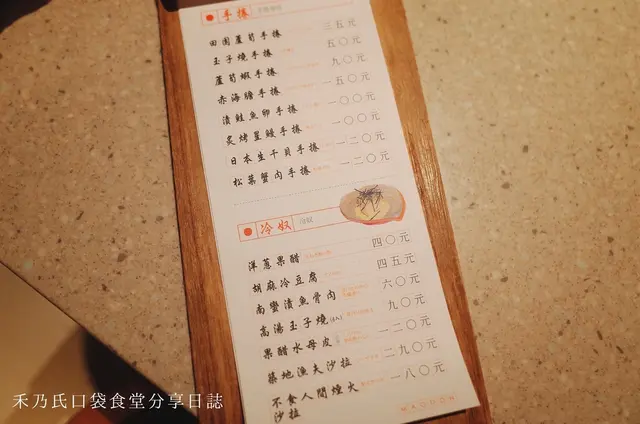 手捲
田園蘆筍手捲 三五元
玉子燒手捲 五〇元
蘆筍蝦手捲 九〇元
赤海膽手捲 一五〇元
漬鮭魚卵手捲 一〇〇元
炙烤星鰻手捲 一〇〇元
日本生干貝手捲 一二〇元
松葉蟹肉手捲 一二〇元
冷奴
洋蔥果醋 四〇元
胡麻冷豆腐 四五元
南蠻漬魚骨肉 六〇元
高湯玉子燒 九〇元
果醋水母皮 一二〇元
築地漁夫沙拉 二九〇元
不食人間煙火 一八〇元
沙拉
禾乃氏口袋食堂分享日誌